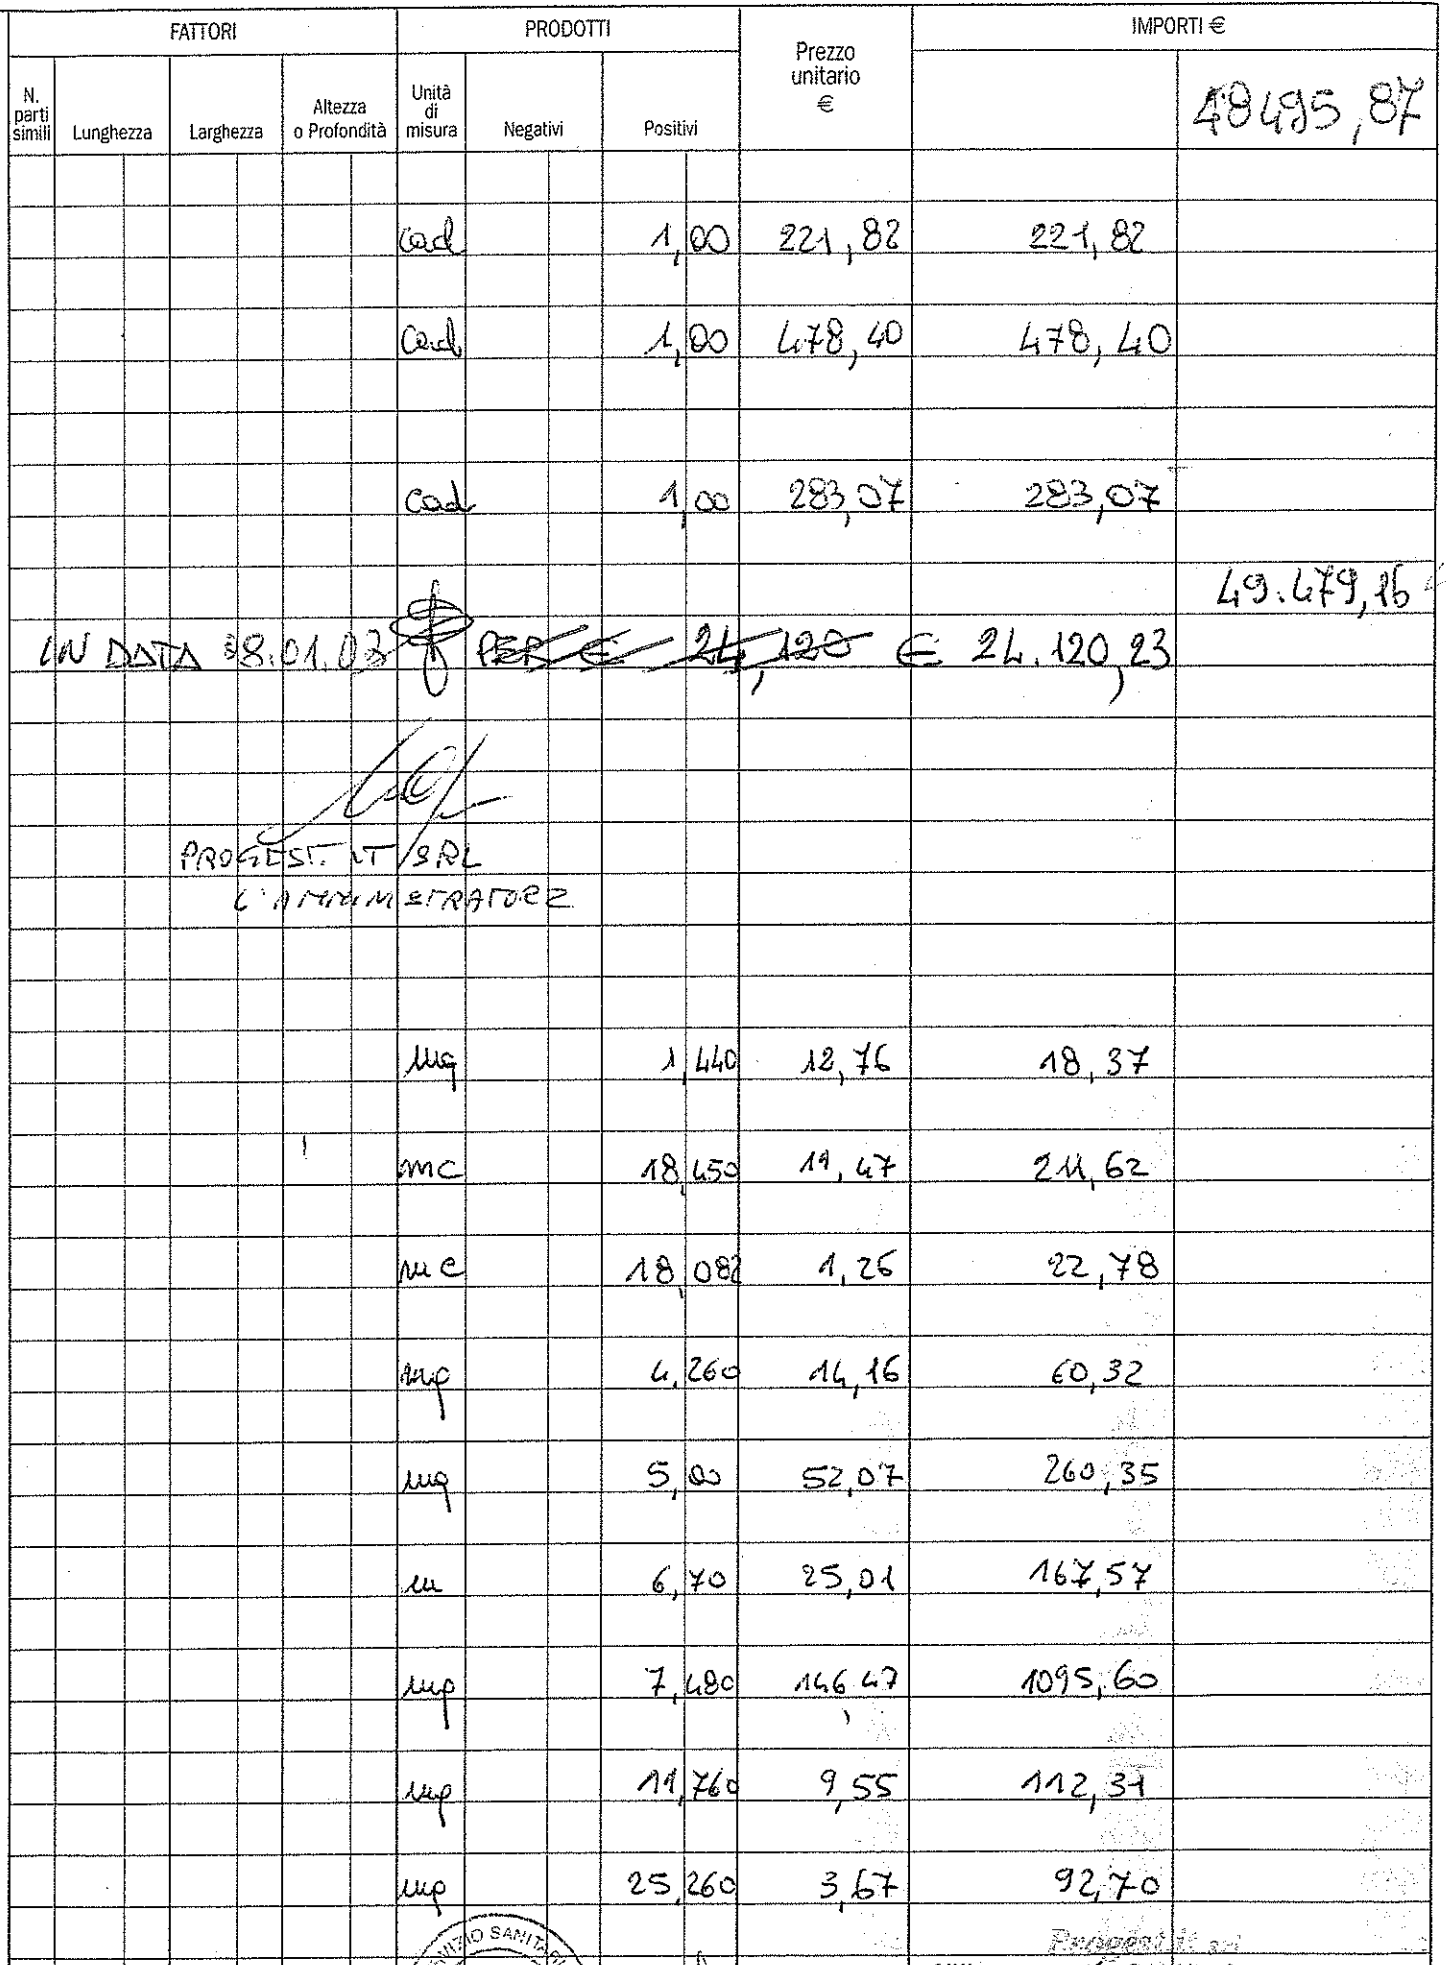 FATTORI PRODOTTI Prezzo unitario € IMPORTI €
N. parti simili Lunghezza Larghezza Altezza o Profondità Unità di misura Negativi Positivi 48495,87
cad 1,00 221,82 221,82
cad 1,00 478,40 478,40
cad 1,00 283,07 283,07
49.479,16
IN DATA 28.01.03 PER € 24,120 € 24.120,23
PROGEST. IT SRL
L'AMMINISTRATORE
mq 1,440 12,76 18,37
mc 18,450 11,47 211,62
mc 18,082 1,26 22,78
mq 4,260 14,16 60,32
mq 5,00 52,07 260,35
m 6,70 25,01 167,57
mq 7,480 146,47 1095,60
mq 11,760 9,55 112,31
mq 25,260 3,67 92,70
Progest.it srl